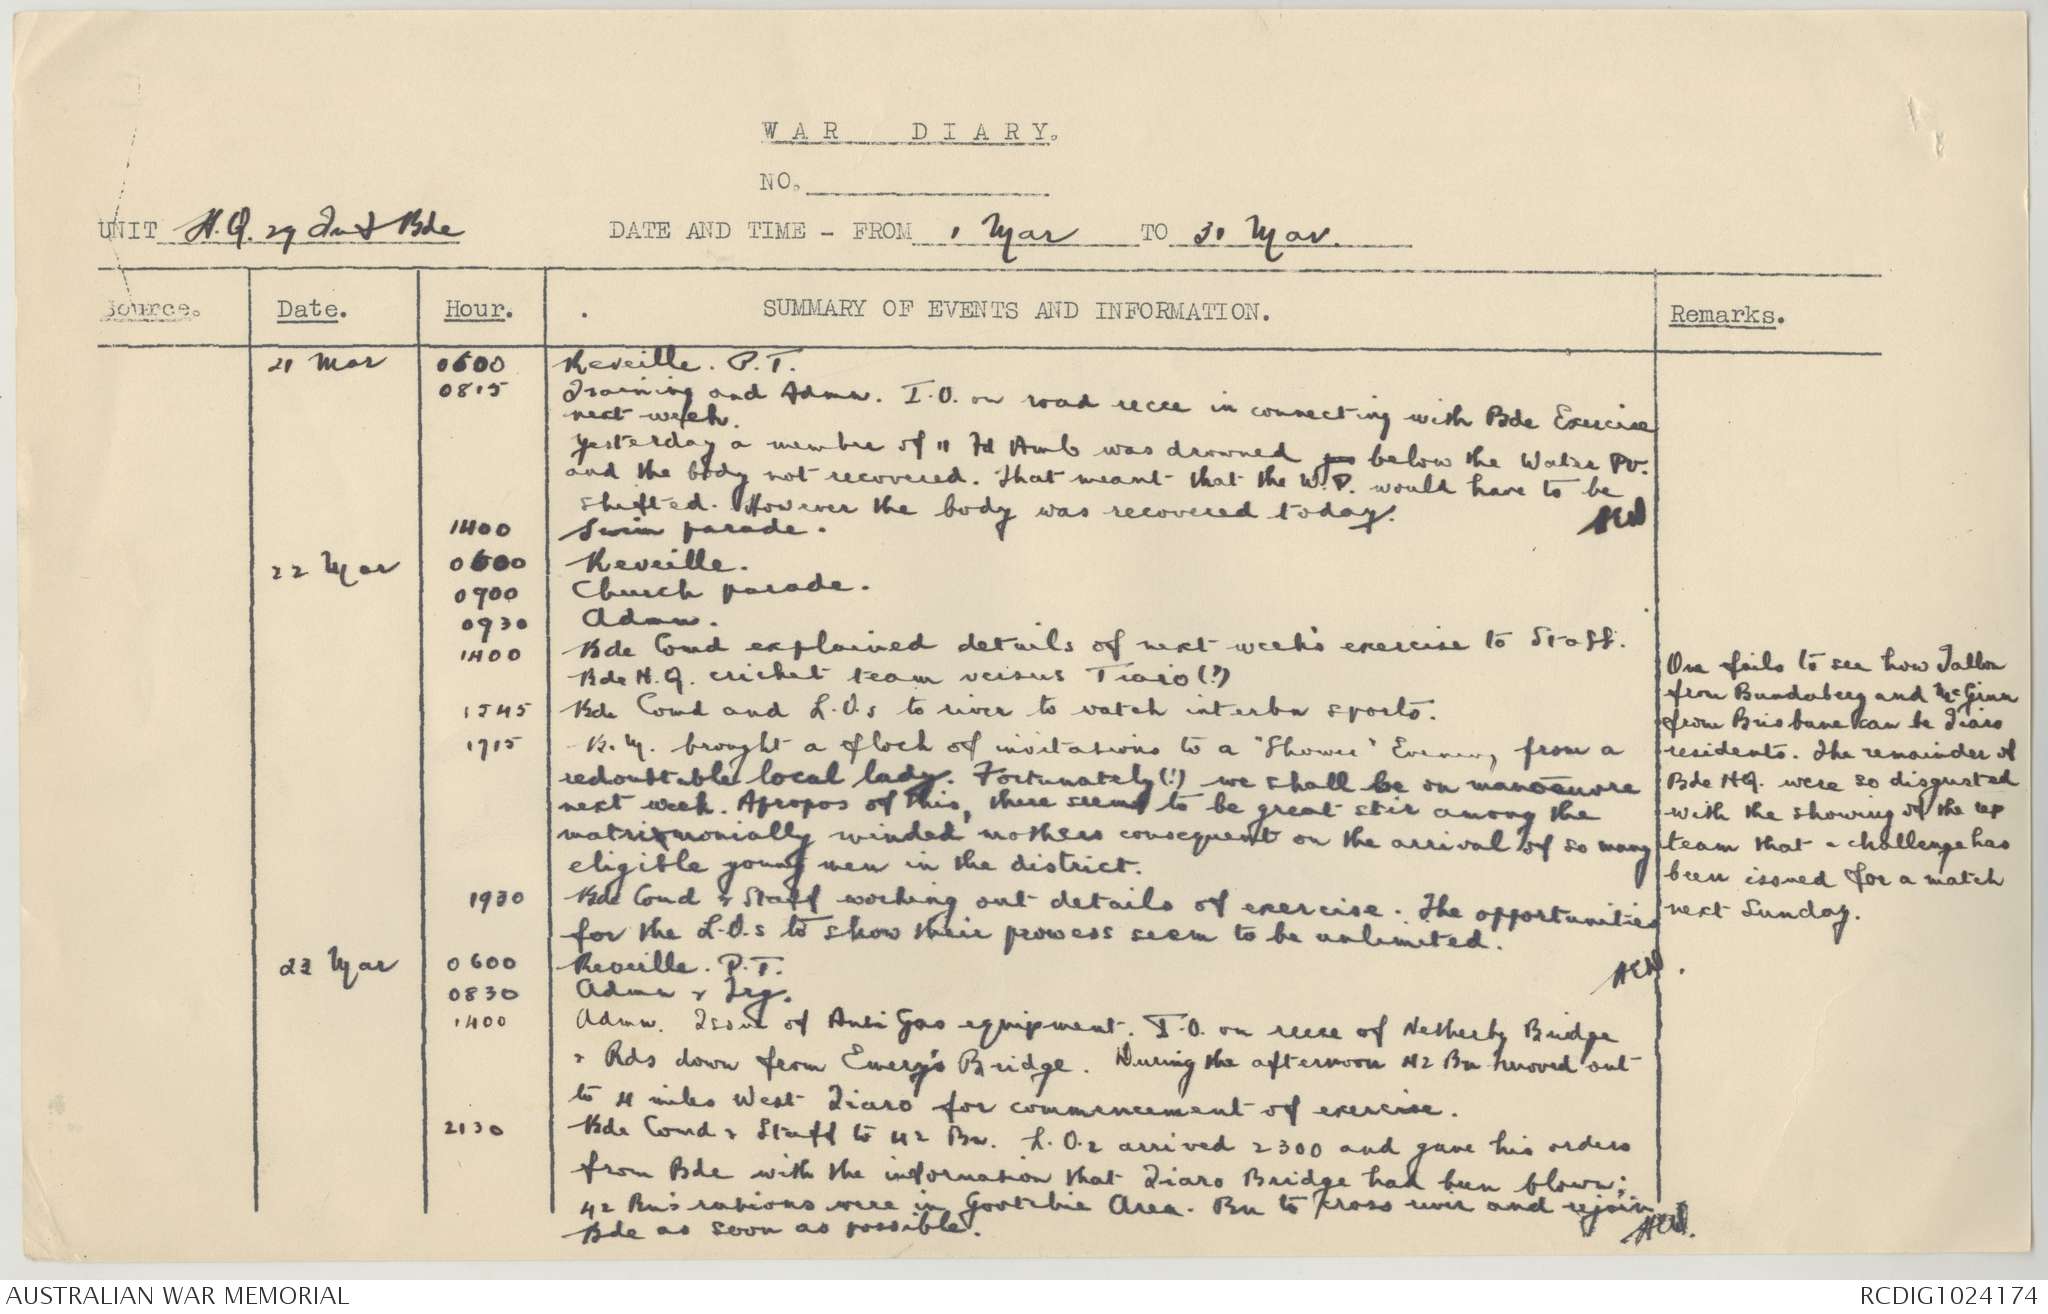 WAR DIARY.
NO.
UNIT H.Q. 29 Inf Bde DATE AND TIME - FROM 1 Mar TO 31 Mar.
Source. Date. Hour. SUMMARY OF EVENTS AND INFORMATION. Remarks.
21 Mar 0600 Reveille. P.T.
0815 Training and Admn. I.O. on road recce in connecting with Bde Exercise
next week.
Yesterday a membre of 11 Fd Amb was drowned below the Water Pt.
and the body not recovered. That meant that the W.P. would have to be
shifted. However the body was recovered today.
1400 Swim parade.
22 Mar 0600 Reveille.
0900 Church parade.
0930 Admn.
1400 Bde Comd explained details of next week's exercise to Staff.
Bde H.Q. cricket team versus Tiaro (?)
1545 Bde Comd and L.O.s to river to watch interbn sports.
1715 B.M. brought a flock of invitations to a "Shower" Evening from a
redoubtable local lady. Fortunately (!) we shall be on manoeuvre
next week. Apropos of this, there seems to be great stir among the
matrimonially minded mothers consequent on the arrival of so many
eligible young men in the district.
1930 Bde Comd & Staff working out details of exercise. The opportunities
for the L.O.s to show their prowess seem to be unlimited.
One fails to see how Tallon
from Bundaberg and McGinn
from Brisbane can be Tiaro
residents. The remainder of
Bde HQ. were so disgusted
with the showing of the rep
team that a challenge has
been issued for a match
next Sunday.
23 Mar 0600 Reveille. P.T.
0830 Admn & Trg.
1400 Admn. Issue of Anti Gas equipment. I.O. on recce of Netherby Bridge
& Rds down from Emery's Bridge. During the afternoon 42 Bn moved out
to 4 miles West Tiaro for commencement of exercise.
2130 Bde Comd & Staff to 42 Bn. L.O.2 arrived 2300 and gave his orders
from Bde with the information that Tiaro Bridge had been blown;
42 Bn's rations were in Gootchie Area. Bn to cross river and rejoin
Bde as soon as possible.
AUSTRALIAN WAR MEMORIAL RCDIG1024174